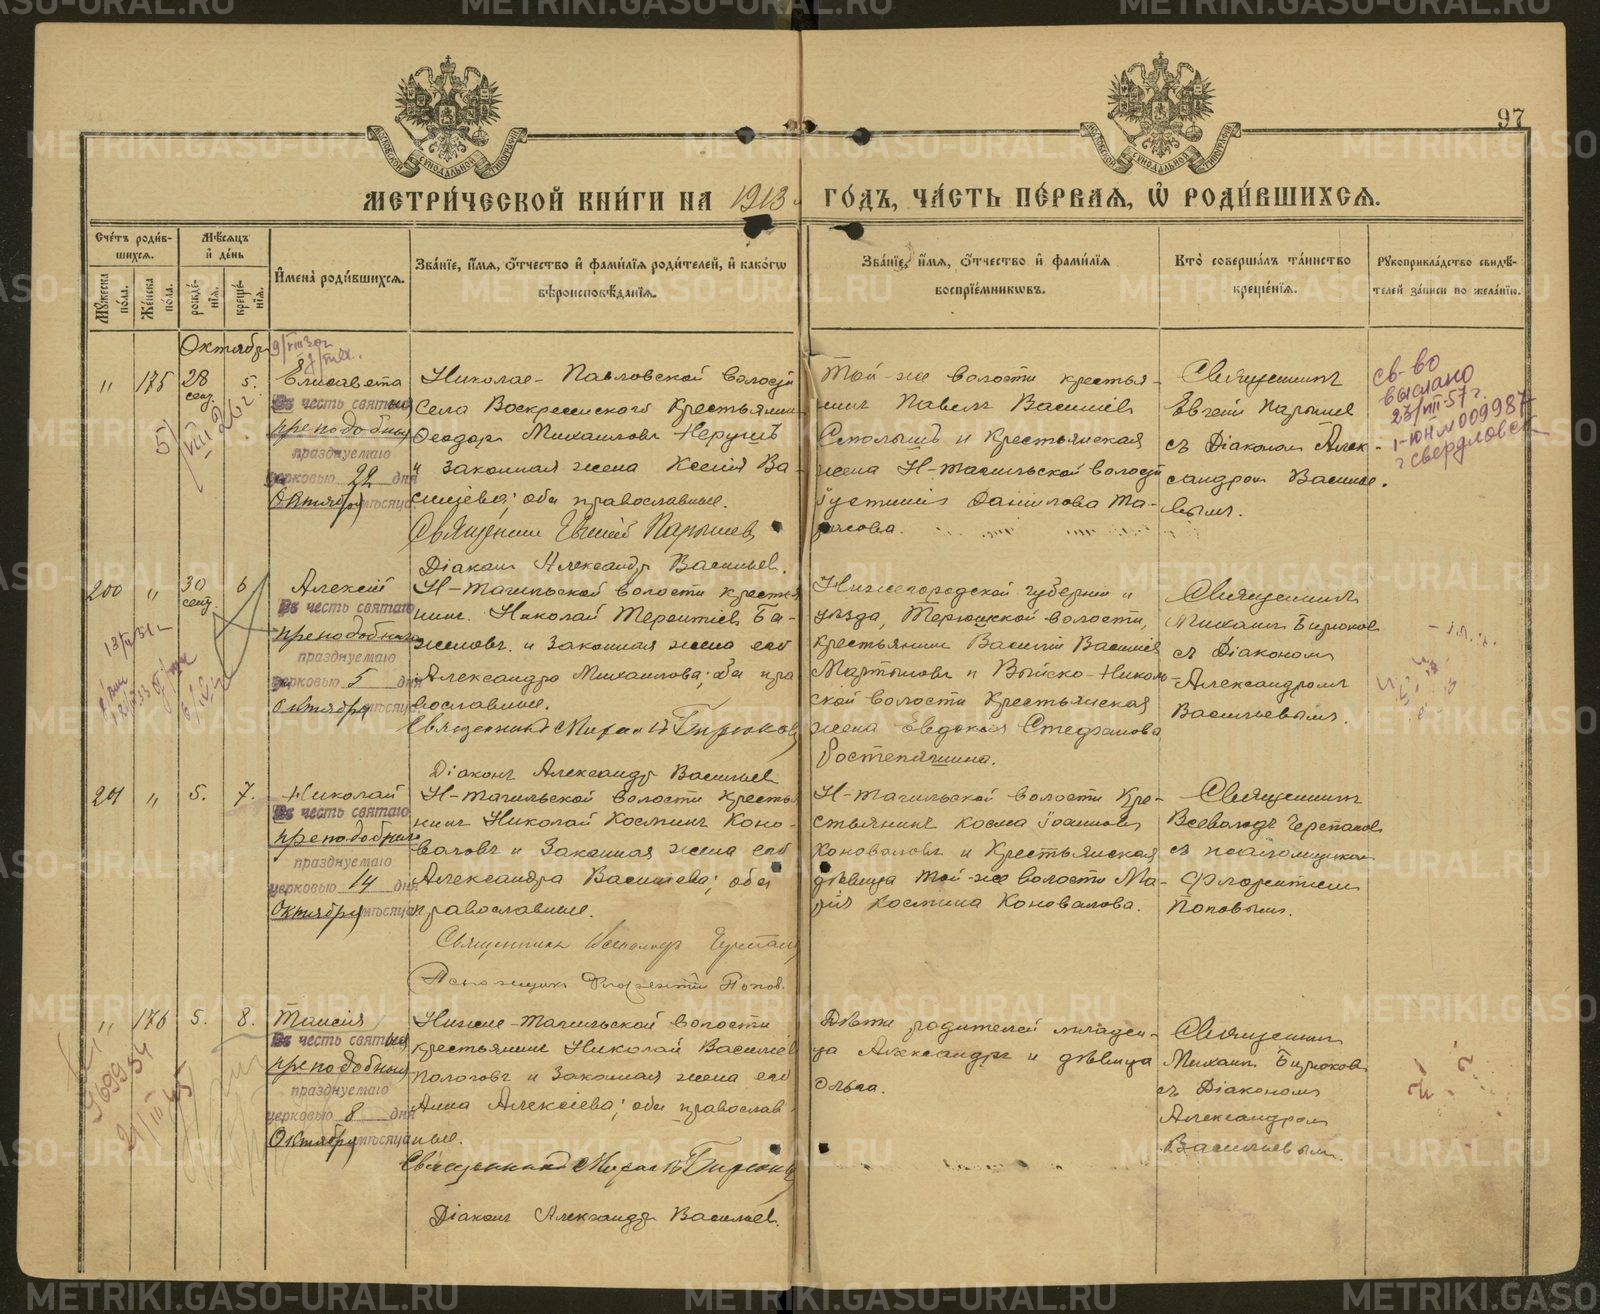 97
МЕТРИ́ЧЕСКОЙ КНИ́ГИ НА 1913 ГО́ДЪ, ЧА́СТЬ ПЕ́РВАЯ, Ѽ РОДИ́ВШИХСЯ.
Сче́тъ роди́в-
шихся.
Мѣ́сяцъ
и҆ де́нь
Мꙋжеска по́ла.
Же́нска по́ла.
рожде́-
нїѧ.
креще́-
нїѧ.
И҆мена̀ роди́вшихся.
Зва́нїе, и҆́мя, ѻ҆́тчество и҆ фами́лїя роди́телей, и҆ како́гѡ
вѣроисповѣ́данїя.
Зва́нїе, и҆́мя, ѻ҆́тчество и҆ фами́лїя
воспрїе́мникѡвъ.
Кто̀ соверша́лъ та́инство
креще́нїя.
Рꙋкоприкла́дство свидѣ́-
телей за́писи по жела́нїю.
Октябрь
" 175 28 сент. 5.
Елисавета
Въ честь святыя
преподобныя
празднуемаго
церковью 22 дня
Октября мѣсяца
Николае-Павловской волости
села Воскресенского крестьянин
Ѳеодоръ Михаиловъ
и законная жена Ксенія Ва-
силіева; оба православные.
Священник Евгеній Парышев
Діаконъ Александръ Васильев.
Той-же волости крестья-
нинъ Павелъ Василіев
и крестьянская
жена Н-тагильской волости
Іустинія Данилова Та-
расова.
Священникъ
Евгеній Парышев
съ Діаконом Алек-
сандром Василье-
вымъ.
св-во
выслано
23/VIII-57г.
1-ЮН № 009987
г Свердловск
200 " 30 сент. 6
Алексій
Въ честь святаго
преподобнаго
празднуемаго
церковью 5 дня
Октября мѣсяца
Н-тагильской волости крестья
нинъ Николай Терентіев Ба-
женовъ и законная жена его
Александра Михаилова; оба пра
вославные.
Священникъ Михаилъ Бирюков
Діаконъ Александръ Васильев
Нижегородской губерніи и
уѣзда, Терюшской волости,
крестьянин Василій Василіев
Мартыновъ и Выйско-Николь-
ской волости крестьянская
жена Евдокія Стефанова
Ростепяшина.
Священникъ
Михаилъ Бирюков
съ Діакономъ
Александромъ
Васильевымъ.
201 " 5. 7.
Николай
Въ честь святаго
преподобнаго
празднуемаго
церковью 14 дня
Октября мѣсяца
Н-тагильской волости крестья
нинъ Николай Косминъ Коно-
валовъ и законная жена его
Александра Василіева; оба
православные.
Священникъ Всеволодъ Черепанов
Псаломщикъ Флорентій Попов.
Н-тагильской волости кре-
стьянинъ Косма Іоаннов
Коноваловъ и крестьянская
дѣвица той-же волости Ма-
рія Космина Коновалова.
Священникъ
Всеволодъ Черепанов
съ псаломщиком
Флорентіем
Поповымъ.
" 176 5. 8.
Таисія
Въ честь святыя
преподобныя
празднуемаго
церковью 8 дня
Октября мѣсяца
Нижне-Тагильской волости
крестьянинъ Николай Василіев
Пологовъ и законная жена его
Анна Алексіева; оба православ-
ные.
Священникъ Михаилъ Бирюков
Діаконъ Александръ Васильев.
Дѣти родителей младен-
ца Александръ и дѣвица
Ольга.
Священникъ
Михаилъ Бирюков
съ Діакономъ
Александром
Васильевым.
METRIKI.GASO-URAL.RU